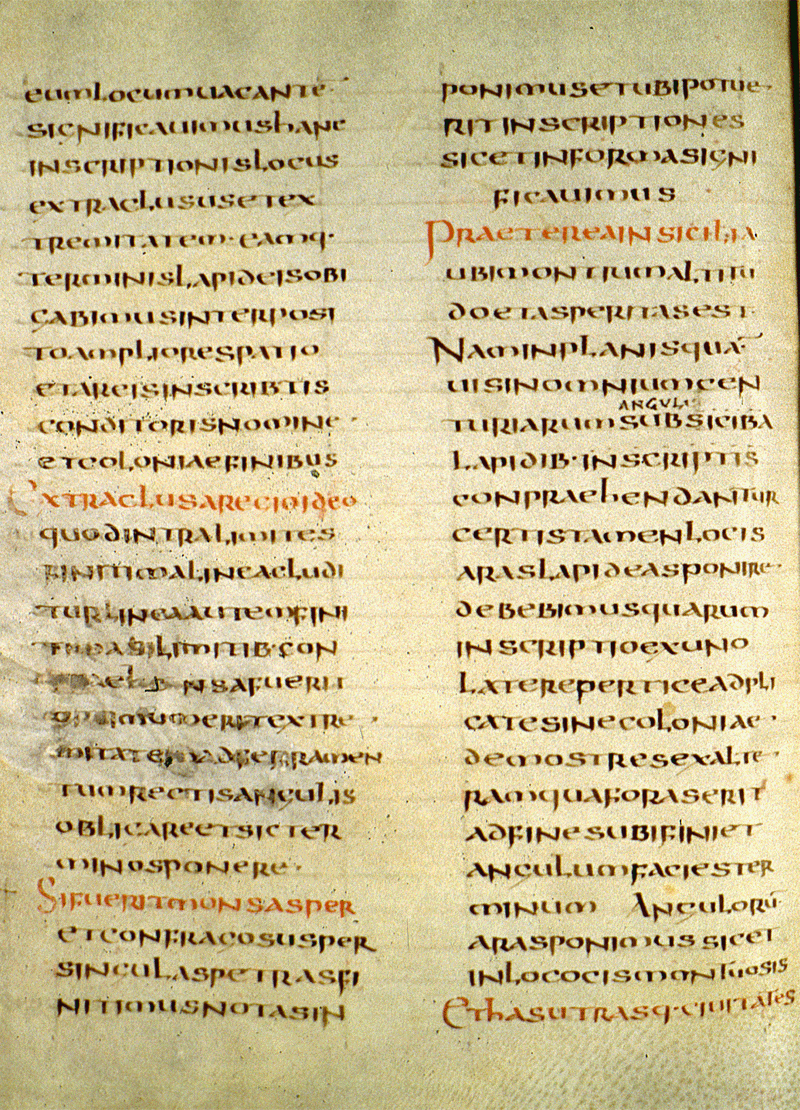 eumlocumuacante
significauimushanc
inscriptionislocus
extraclususetex
tremitatem·eamq·
terminislapideisobi
cabimusinterposi
toampliorespatio
etarcisinscribtis
conditorisnomine·
etcoloniaefinibus
Extraclusaregioideo
quodintralimites
finitimalineacludi
turlineaautemfini
limitib·con
nsafuerit
extre·
mitate
tumrectisangulis
obligareetsicter
minosponere·
Sifueritmonsasper
etconfragosusper
singulaspetrasfi
nitimusnotasin
ponimusetubipotue·
ritinscriptiones
sicetinformasigni
ficauimus
Praetereainsicilia
ubimontiumaltitu
doetasperitasest
Naminplanisqua·
uisinomniumcen
ANGVLI·
turiarumsubsiciba
lapidib·inscriptis
conpraehendantur
certistamenlocis
araslapideasponire·
debebimusquarum
inscriptioexuno
latereperticeadpli
catesinecoloniae·
demostresexalte·
ramquaforaserit
adfinesubifiniet
angulumfaciester
minum Angulorū
arasponimussicet
inlocogismontuosis
Ethasutrasq·ciuitates